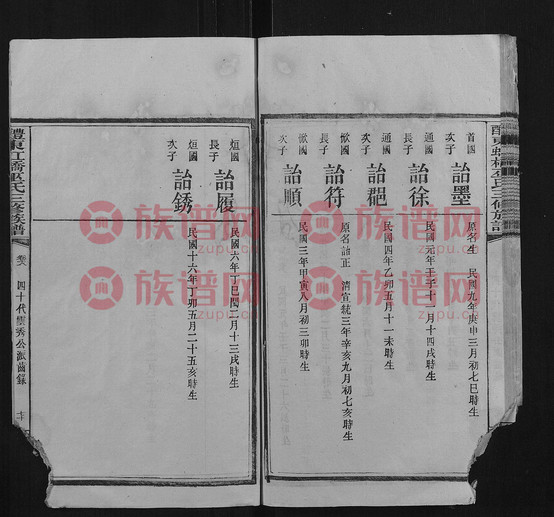 首國
詒墨
原名生 民國九年庚申三月初七巳時生
通國長子
詒徐
民國元年壬子十一月十四戌時生
通國次子
民國四年乙卯五月十一未時生
懨國長子
詒符
原名詒正 清宣統三年辛亥九月初七亥時生
次子
詒順
民國三年甲寅八月初三卯時生
烜國長子
詒履
民國六年丁巳閏二月十三戌時生
烜國次子
詒銹
民國十六年丁卯五月二十五亥時生
卷八
四十代
秀公派齒錄
族谱网
zupu.cn